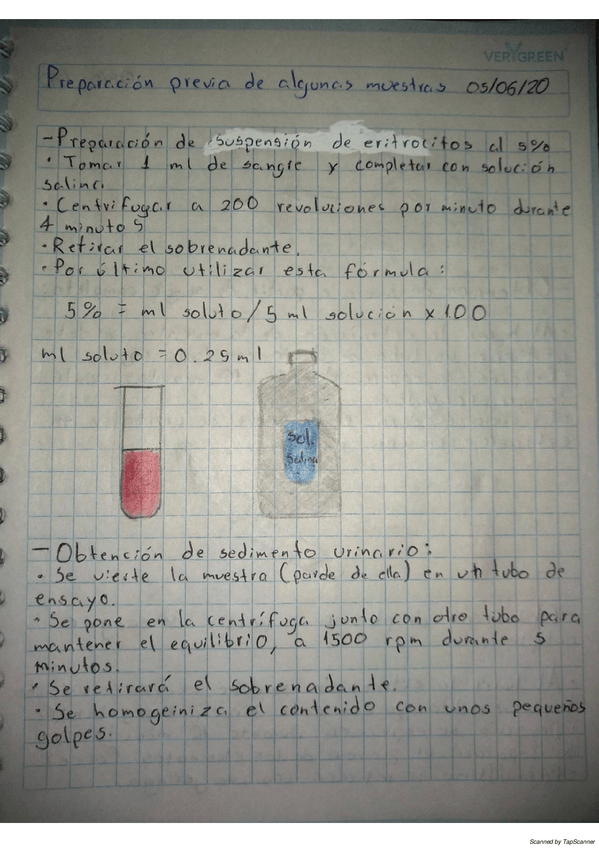 VERYGREEN
Preparación previa de algunas muestras 05/06/20
- Preparación de suspensión de eritrocitos al 5%
· Tomar 1 ml de sangre y completar con solución
salina.
· Centrifugar a 200 revoluciones por minuto durante
4 minutos
· Retirar el sobrenadante.
· Por último utilizar esta fórmula:
5% = ml soluto/5 ml solución x 100
ml soluto = 0.25 ml
Sol.
Salina
- Obtención de sedimento urinario:
· Se vierte la muestra (parde de ella) en un tubo de
ensayo.
· Se pone en la centrífuga junto con otro tubo para
mantener el equilibrio, a 1500 rpm durante 5
minutos.
· Se retirará el sobrenadante.
· Se homogeiniza el contenido con unos pequeños
golpes.
Scanned by TapScanner